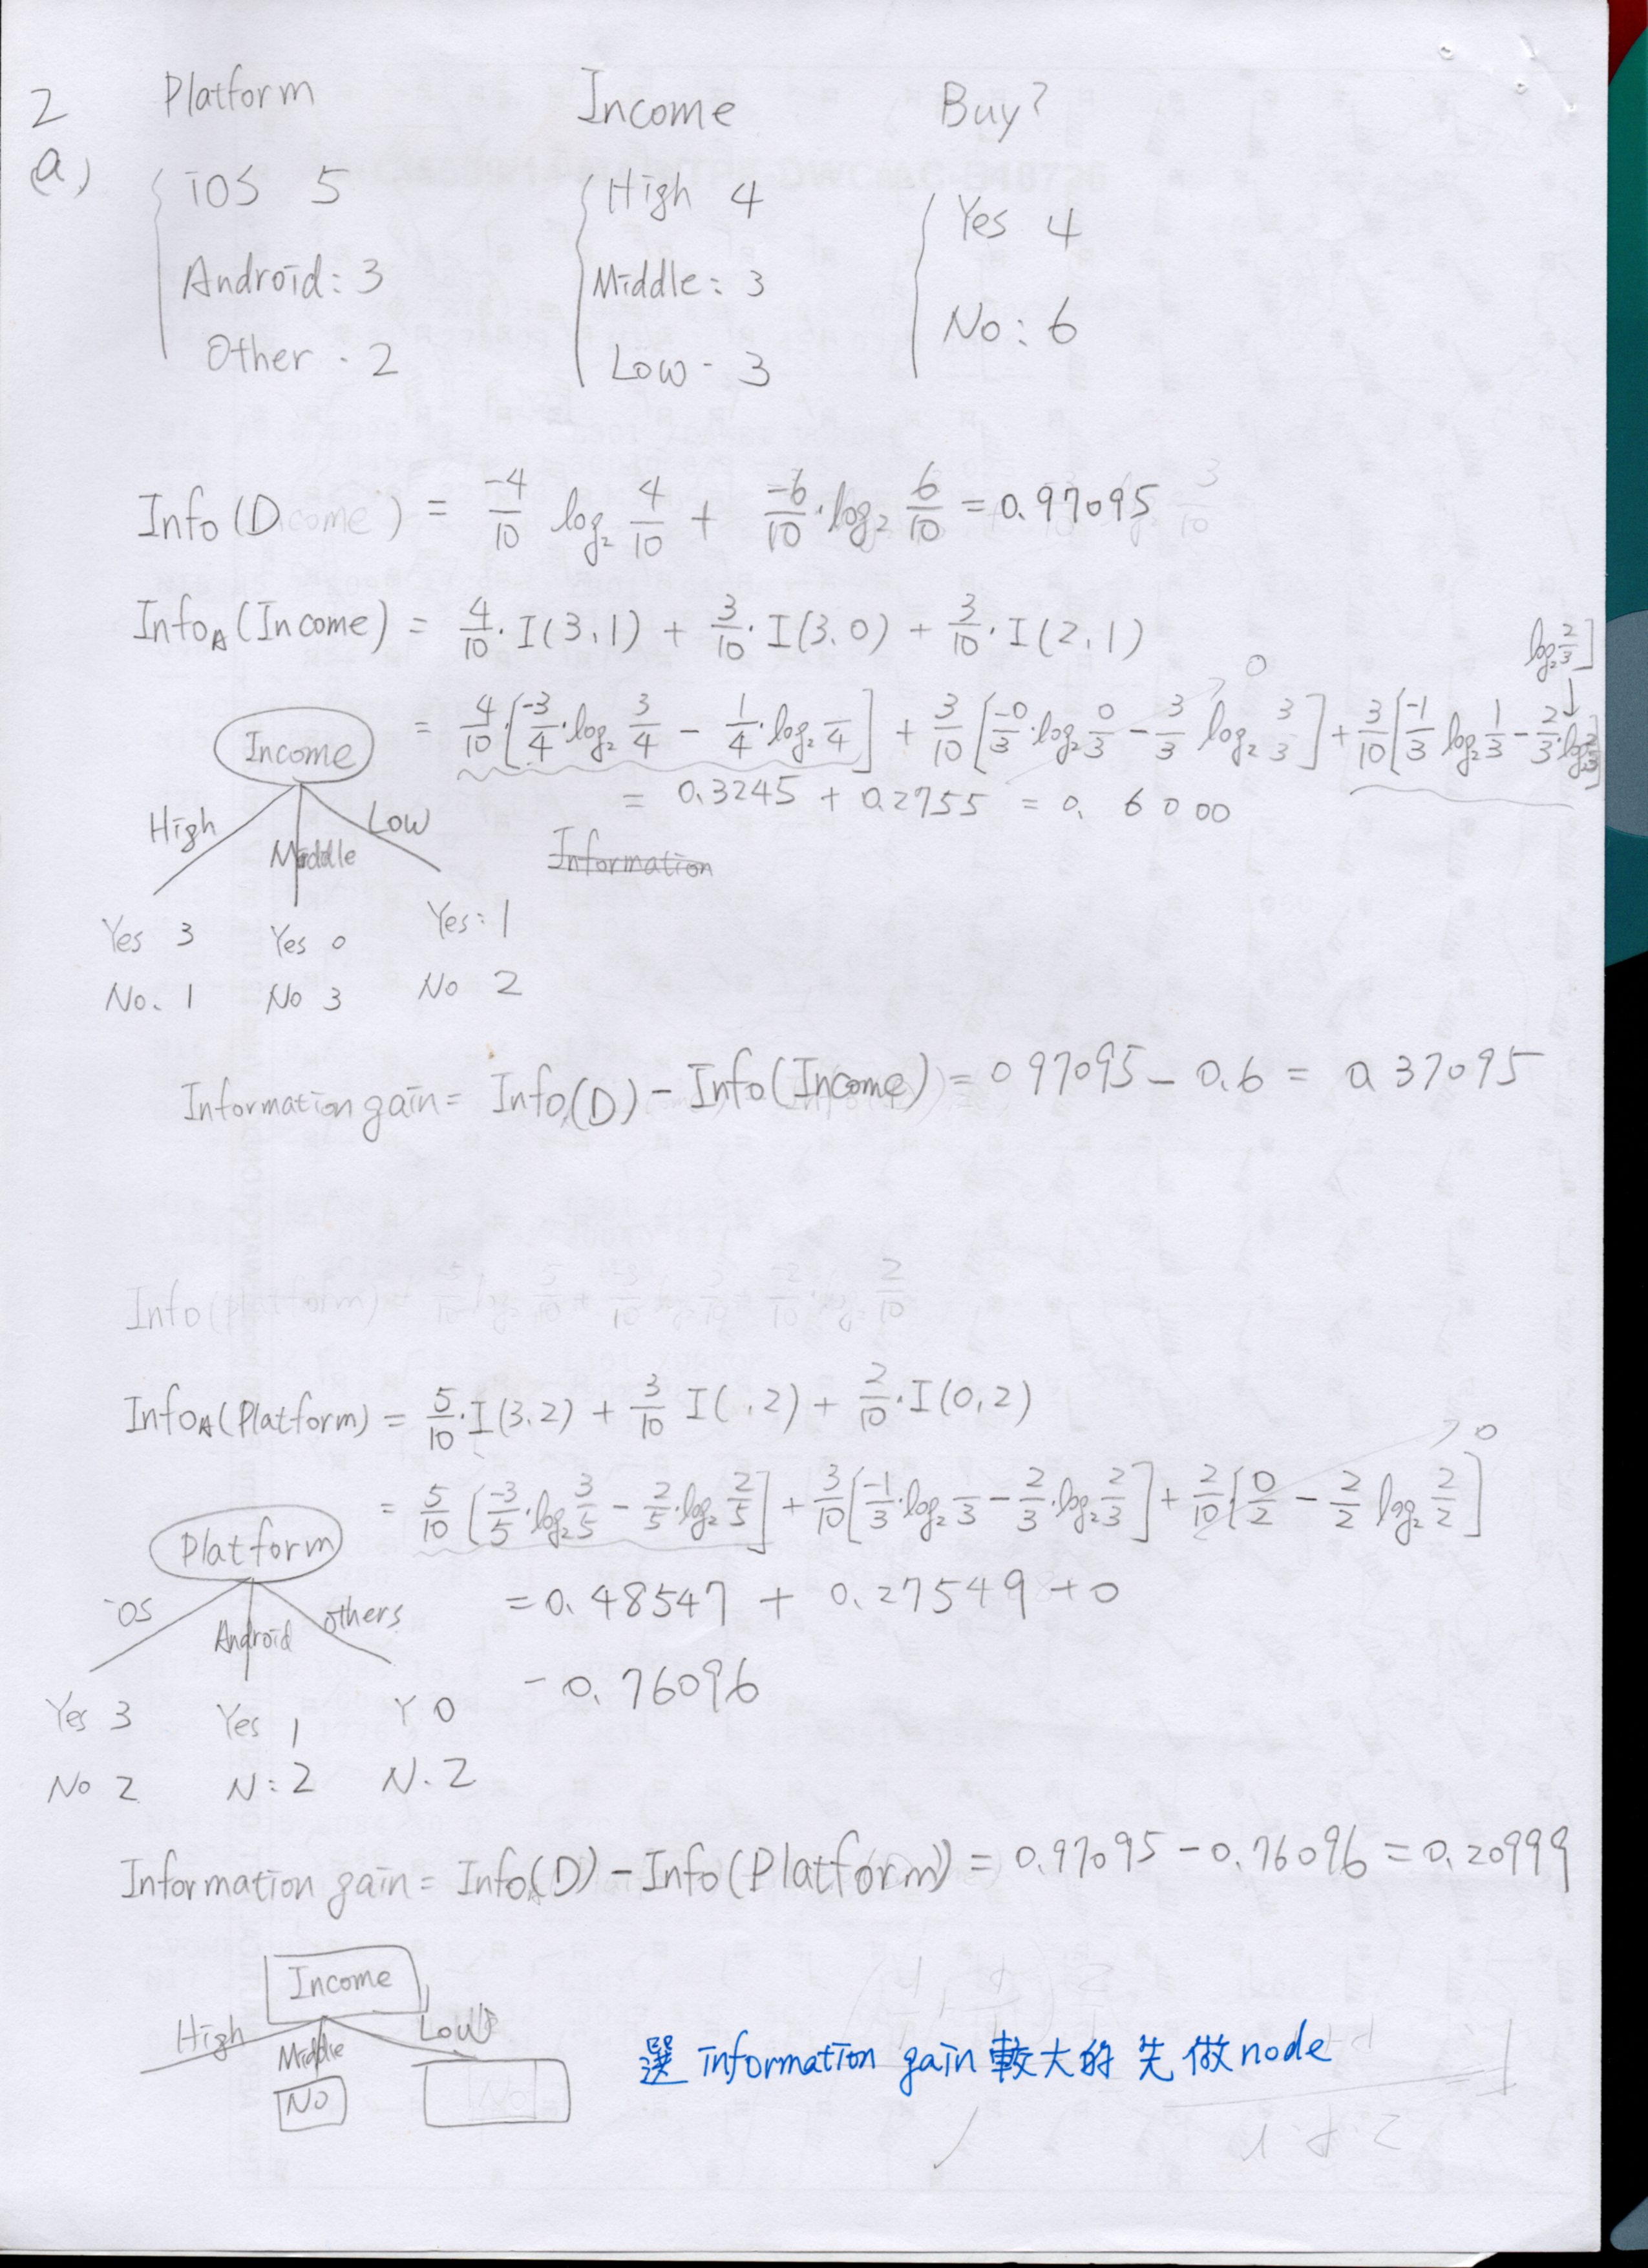 2 Platform Income Buy?
(a) iOS 5 High 4 Yes 4
Android: 3 Middle: 3 No: 6
Other · 2 Low - 3
Info(D) = -4/10 log₂ 4/10 + -6/10 · log₂ 6/10 = 0.97095
Info_A(Income) = 4/10 · I(3,1) + 3/10 · I(3,0) + 3/10 · I(2,1)
= 4/10 · [-3/4 · log₂ 3/4 - 1/4 · log₂ 1/4] + 3/10 [-0/3 · log₂ 0/3 - 3/3 log₂ 3/3] + 3/10 [-1/3 log₂ 1/3 - 2/3 · log₂ 2/3]
→ 0
log₂ 2/3]
= 0.3245 + 0.2755 = 0.6000
Information
Income
High Middle Low
Yes 3 Yes 0 Yes: 1
No. 1 No 3 No 2
Information gain = Info(D) - Info(Income) = 0.97095 - 0.6 = 0.37095
Info(Platform)
Info_A(Platform) = 5/10 · I(3,2) + 3/10 I( ,2) + 2/10 · I(0,2)
= 5/10 [-3/5 · log₂ 3/5 - 2/5 · log₂ 2/5] + 3/10 [-1/3 · log₂ 1/3 - 2/3 · log₂ 2/3] + 2/10 [0/2 - 2/2 log₂ 2/2]
→ 0
= 0.48547 + 0.27549 + 0
= 0.76096
Platform
iOS Android others
Yes 3 Yes 1 Y 0
No 2 N: 2 N. 2
Information gain = Info(D) - Info(Platform) = 0.97095 - 0.76096 = 0.20999
Income
High Middle Low
NO
選 information gain 較大的先做 node